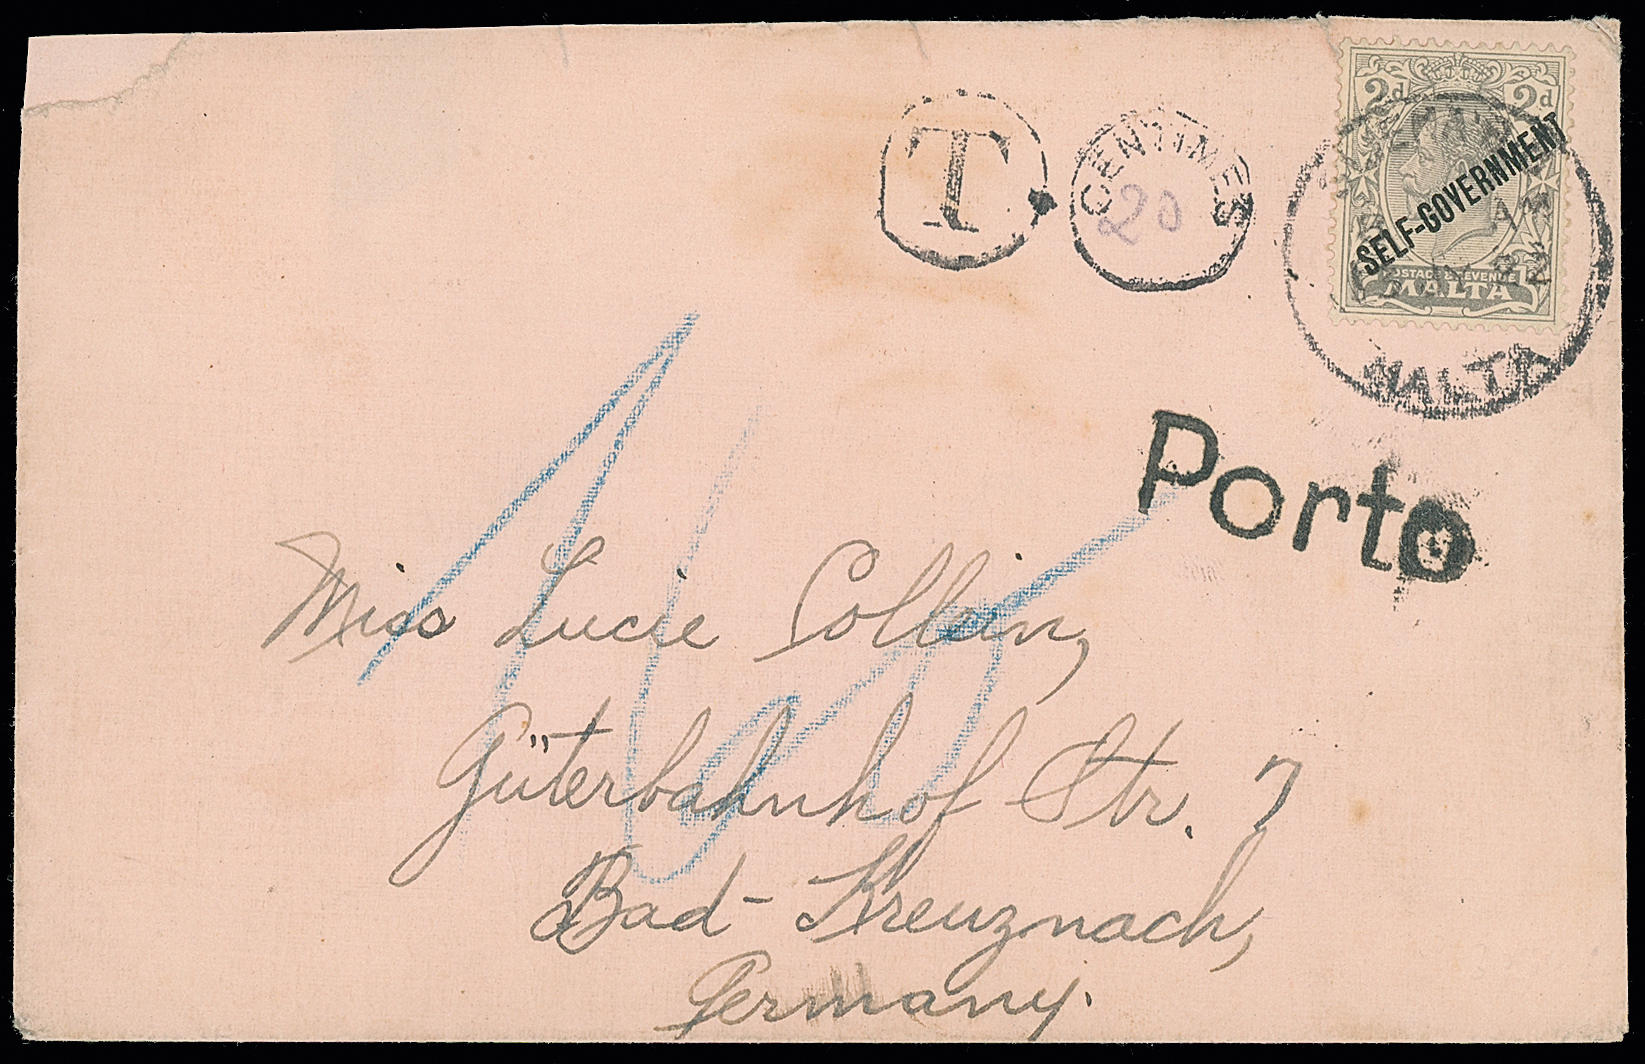 2d 2d
SELF-GOVERNMENT
POSTAGE & REVENUE
MALTA
MALTA
T
CENTIMES
20
Porto
Miss Lucie Collein,
Güterbahnhof Str. 7
Bad-Kreuznach,
Germany.